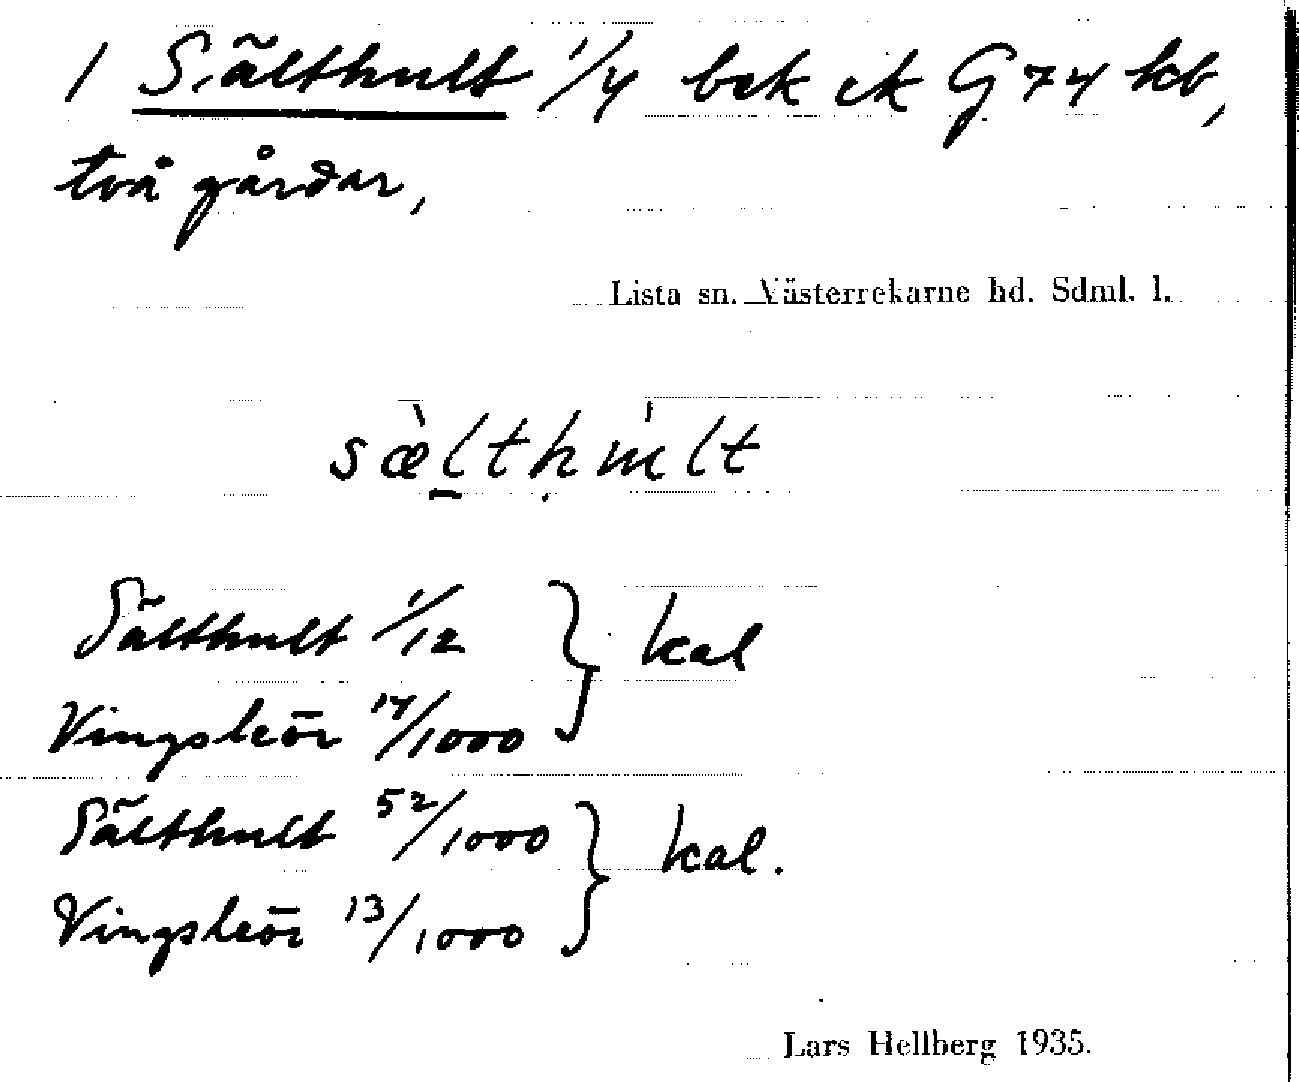 1 Sälthult 1/4 bek ek G 74 kb,
två gårdar,
Lista sn. Västerrekarne hd. Sdml. l.
Sälthult 1/12 } kal
Vingsleör 17/1000
Sälthult 52/1000 } kal.
Vingsleör 13/1000
Lars Hellberg 1935.